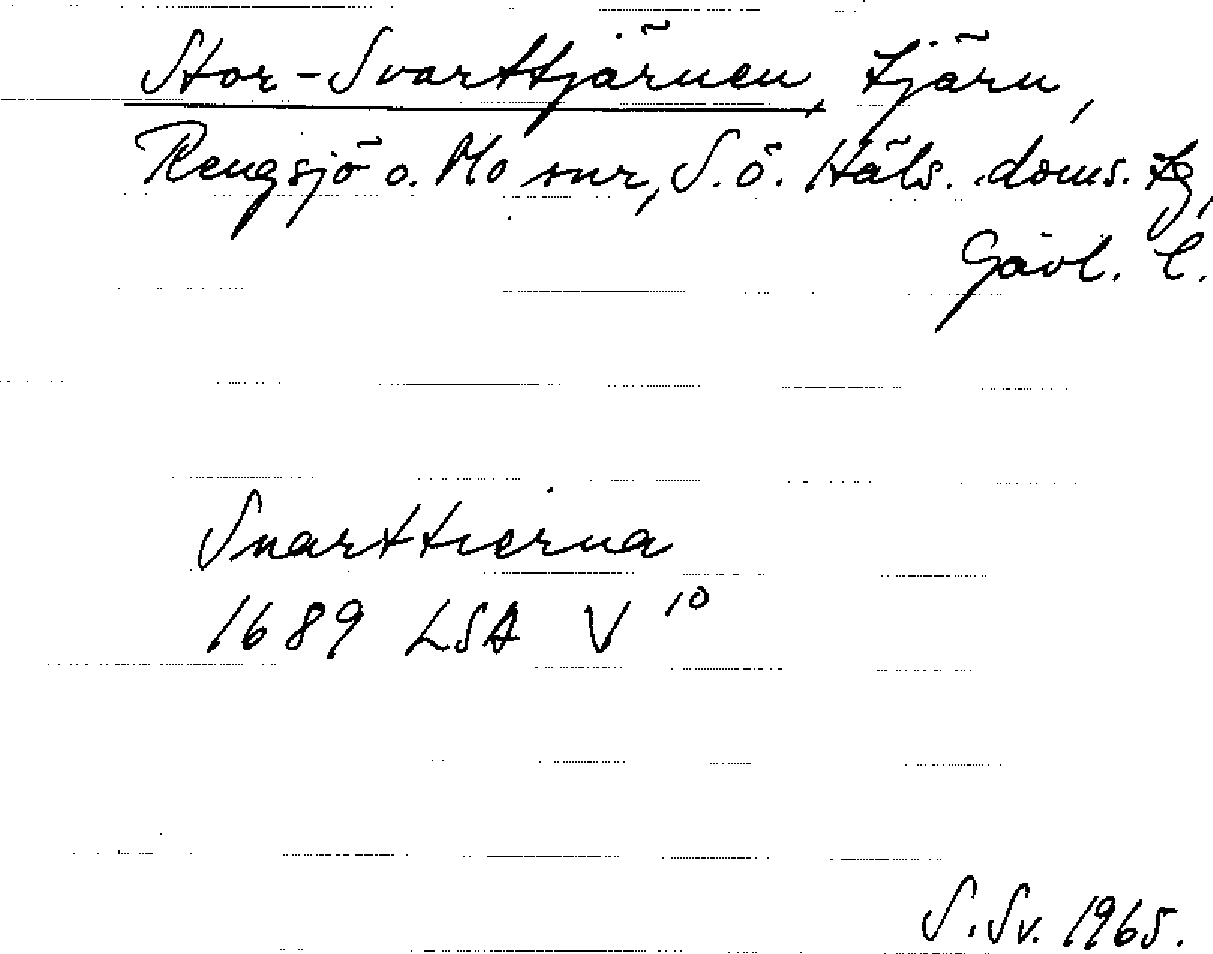 Stor-Svarttjärnen, tjärn,
Rengsjö o. Mo snr, S.ö. Häls. doms. tg,
Gävl. l.
Suarttierna
1689 LSA V 10
S. Sv. 1965.